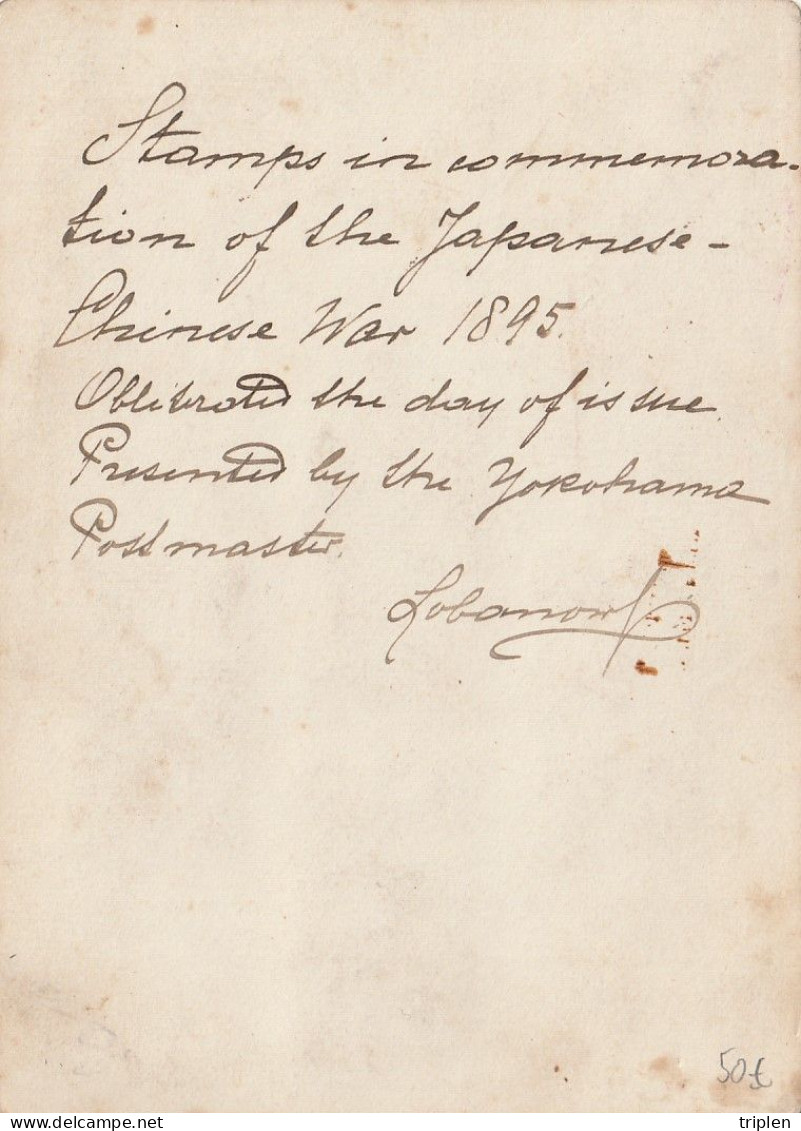 Stamps in commemora-
tion of the Japanese-
Chinese War 1895.
Obliterated the day of issue.
Presented by the Yokohama
Postmaster.
Lobanow
50£
Delcampe.net
triplen